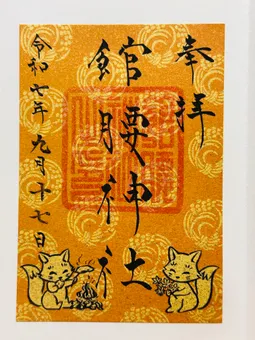 奉拝
館腰神社
令和七年九月十七日